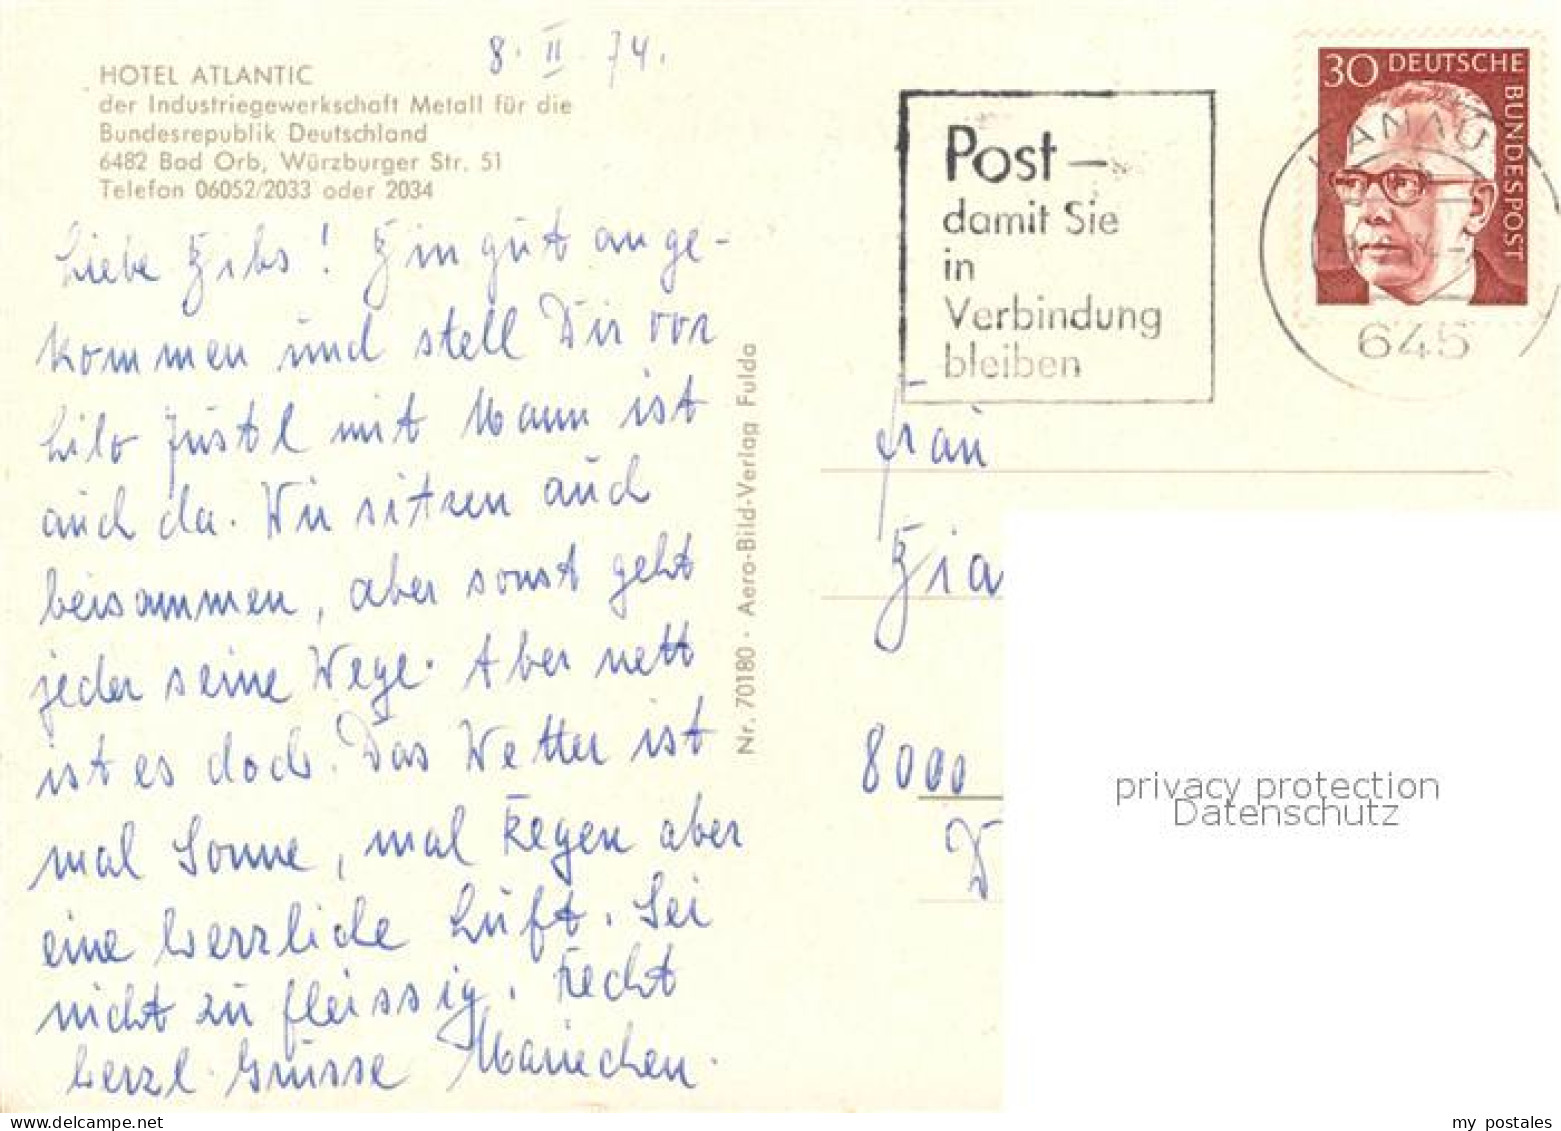 8. II. 74.
HOTEL ATLANTIC
der Industriegewerkschaft Metall für die
Bundesrepublik Deutschland
6482 Bad Orb, Würzburger Str. 51
Telefon 06052/2033 oder 2034
Liebe ! Bin gut ange-
kommen und stell Dir vor
Lilo mit Mann ist
auch da. Wir sitzen auch
beisammen, aber sonst geht
jeder seine Wege. Aber nett
ist es doch. Das Wetter ist
mal Sonne, mal Regen aber
eine herrliche Luft. Sei
nicht zu fleissig. Recht
herzl. Grüsse
Nr. 70180 · Aero-Bild-Verlag Fulda
Post –
damit Sie
in
Verbindung
bleiben
30 DEUTSCHE
BUNDESPOST
HANAU
645
Frau
8000
privacy protection
Datenschutz
my postales